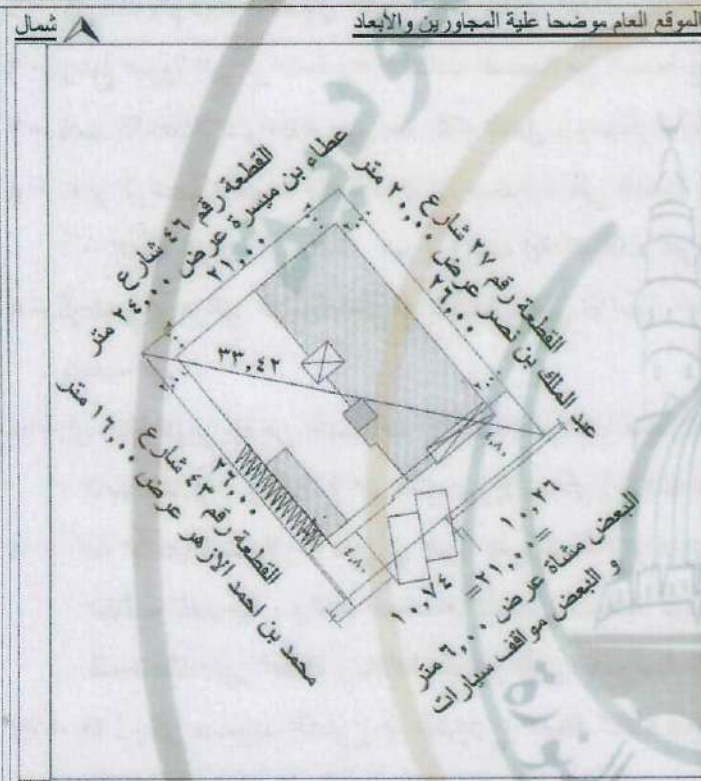 الموقع العام موضحا علية المجاورين والأبعاد
شمال
القطعة رقم ٤٦ شارع
عطاء بن ميسرة عرض ٢٤,٠٠ متر
٢١,٠٠
القطعة رقم ٢٧ شارع
عبد الملك بن نصر عرض ٢٠,٠٠ متر
٢٦,٠٠
٣٣,٤٢
القطعة رقم ٤٣ شارع
محمد بن احمد الازهر عرض ١٦,٠٠ متر
٢٦,٠٠
٤,٨٠
٤,٨٠
١٠,٢٦
=٢١,٠٠=
١٠,٧٤
البعض مشاة عرض ٦,٠٠ متر
و البعض مواقف سيارات